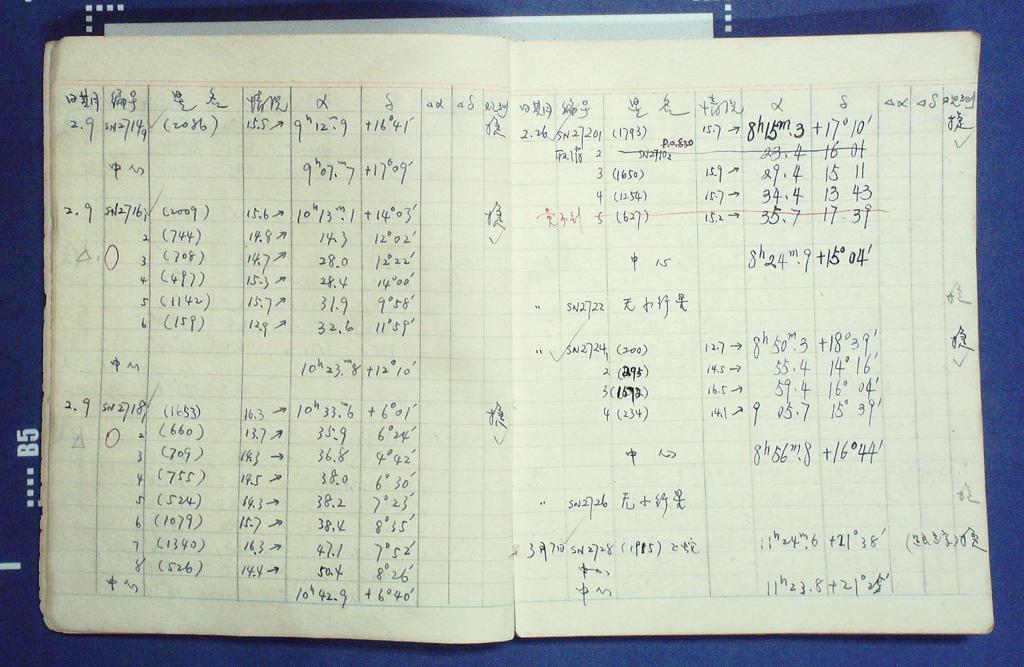 日期 编号 星名 情况 α δ Δα Δδ 观测
2.9 SN2714 (2086) 15.5↗ 9ʰ12ᵐ.9 +16°41′
中心 9ʰ07ᵐ.7 +17°09′
2.9 SN2716 (2009) 15.6↗ 10ʰ13ᵐ.1 +14°03′
2 (744) 14.8↗ 14.3 12°02′
3 (708) 14.7↗ 28.0 12°22′
4 (497) 15.3↗ 28.4 14°00′
5 (1142) 15.7↗ 31.9 9°58′
6 (159) 12.9↗ 32.6 11°59′
中心 10ʰ23ᵐ.8 +12°10′
2.9 SN2718 (1653) 16.3→ 10ʰ33ᵐ.6 +6°01′
2 (660) 13.7↗ 35.9 6°24′
3 (709) 14.3→ 36.8 4°42′
4 (755) 14.5↗ 38.0 6°30′
5 (524) 14.3→ 38.2 7°23′
6 (1079) 15.7↗ 38.4 8°35′
7 (1340) 16.3→ 47.1 7°52′
8 (526) 14.4→ 50.4 8°26′
中心 10ʰ42.9 +6°40′
日期 编号 星名 情况 α δ Δα Δδ 观测
2.26 SN27201 (1793) 15.7→ 8ʰ15ᵐ.3 +17°10′
2 23.4 16 01
3 (1650) 15.9→ 29.4 15 11
4 (1254) 15.7→ 34.4 13 43
5 (627) 15.2→ 35.7 17 39
中心 8ʰ24ᵐ.9 +15°04′
〃 SN2722 无小行星
〃 SN2724 (200) 12.7→ 8ʰ50ᵐ.3 +18°39′
2 (295) 14.5→ 55.4 14°16′
3 (1692) 16.5→ 59.4 16°04′
4 (234) 14.1→ 9 05.7 15°39′
中心 8ʰ56ᵐ.8 +16°44′
〃 SN2726 无小行星
3月7日 SN2728 (1985) 11ʰ24ᵐ.6 +21°38′
中心
中心 11ʰ23.8 +21°25′
B5